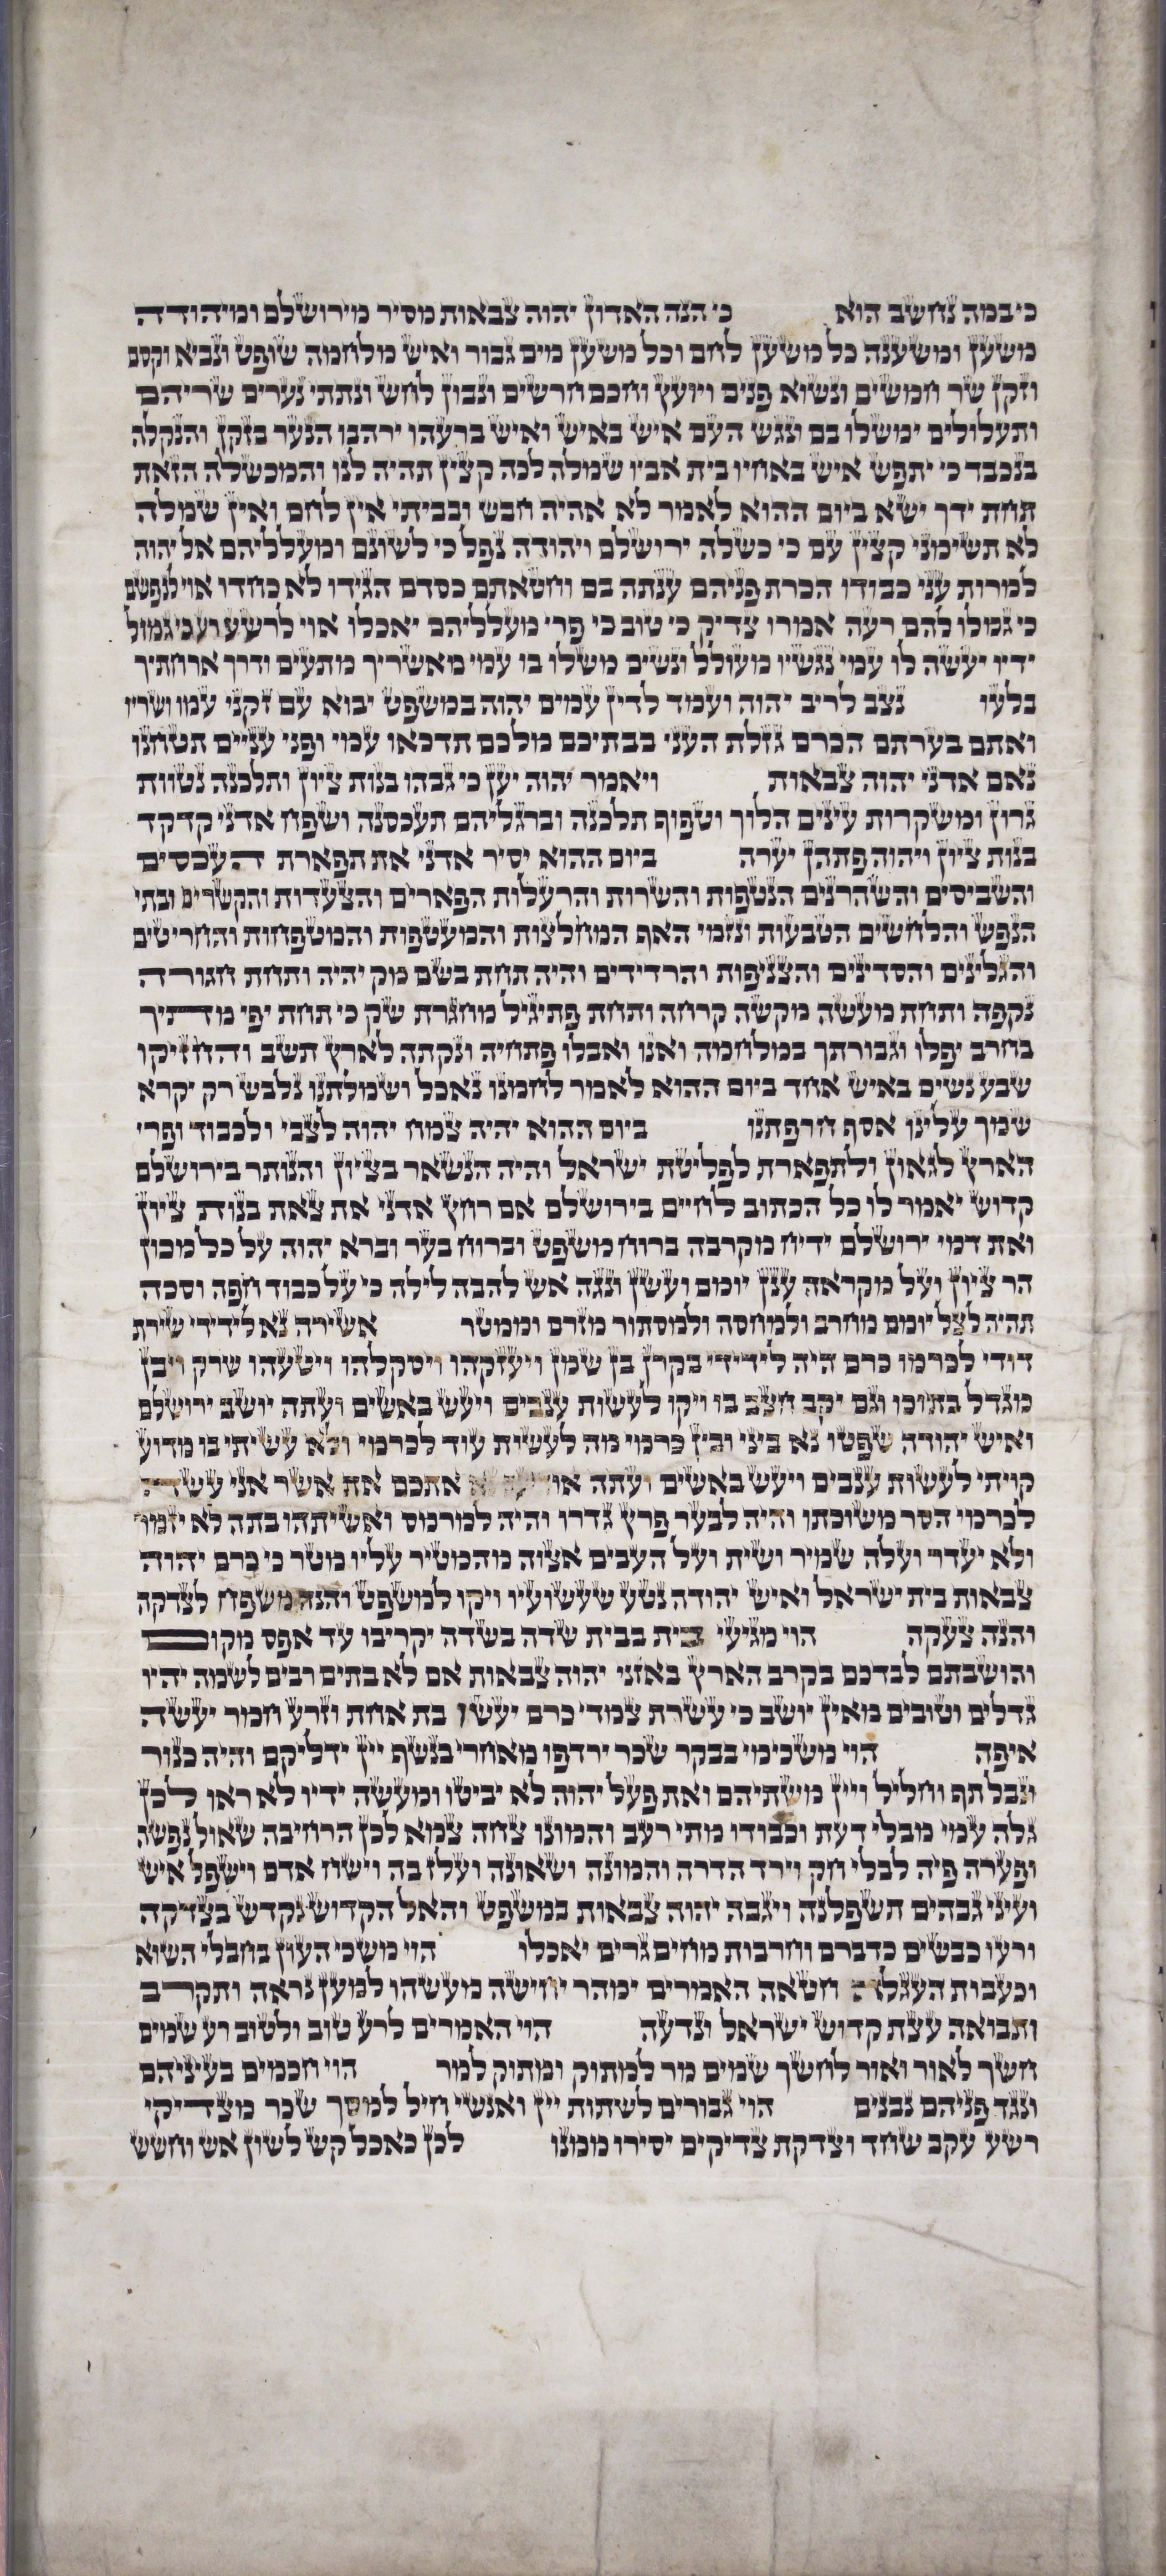 כי במה נחשב הוא כי הנה האדון יהוה צבאות מסיר מירושלם ומיהודה
משען ומשענה כל משען לחם וכל משען מים גבור ואיש מלחמה שופט ונביא וקסם
וזקן שר חמשים ונשוא פנים ויועץ וחכם חרשים ונבון לחש ונתתי נערים שריהם
ותעלולים ימשלו בם ונגש העם איש באיש ואיש ברעהו ירהבו הנער בזקן והנקלה
בנכבד כי יתפש איש באחיו בית אביו שמלה לכה קצין תהיה לנו והמכשלה הזאת
תחת ידך ישא ביום ההוא לאמר לא אהיה חבש ובביתי אין לחם ואין שמלה
לא תשימני קצין עם כי כשלה ירושלם ויהודה נפל כי לשונם ומעלליהם אל יהוה
למרות עני כבודו הכרת פניהם ענתה בם וחטאתם כסדם הגידו לא כחדו אוי לנפשם
כי גמלו להם רעה אמרו צדיק כי טוב כי פרי מעלליהם יאכלו אוי לרשע רע כי גמול
ידיו יעשה לו עמי נגשיו מעולל ונשים משלו בו עמי מאשריך מתעים ודרך ארחתיך
בלעו נצב לריב יהוה ועמד לדין עמים יהוה במשפט יבוא עם זקני עמו ושריו
ואתם בערתם הכרם גזלת העני בבתיכם מלכם תדכאו עמי ופני עניים תטחנו
נאם אדני יהוה צבאות ויאמר יהוה יען כי גבהו בנות ציון ותלכנה נטוות
גרון ומשקרות עינים הלוך וטפוף תלכנה וברגליהם תעכסנה ושפח אדני קדקד
בנות ציון ויהוה פתהן יערה ביום ההוא יסיר אדני את תפארת העכסים
והשביסים והשהרנים הנטפות והשרות והרעלות הפארים והצעדות והקשרים ובתי
הנפש והלחשים הטבעות ונזמי האף המחלצות והמעטפות והמטפחות והחריטים
והגלינים והסדינים והצניפות והרדידים והיה תחת בשם מק יהיה ותחת חגורה
נקפה ותחת מעשה מקשה קרחה ותחת פתיגיל מחגרת שק כי תחת יפי מתיך
בחרב יפלו וגבורתך במלחמה ואנו ואבלו פתחיה ונקתה לארץ תשב והחזיקו
שבע נשים באיש אחד ביום ההוא לאמר לחמנו נאכל ושמלתנו נלבש רק יקרא
שמך עלינו אסף חרפתנו ביום ההוא יהיה צמח יהוה לצבי ולכבוד ופרי
הארץ לגאון ולתפארת לפליטת ישראל והיה הנשאר בציון והנותר בירושלם
קדוש יאמר לו כל הכתוב לחיים בירושלם אם רחץ אדני את צאת בנות ציון
ואת דמי ירושלם ידיח מקרבה ברוח משפט וברוח בער וברא יהוה על כל מכון
הר ציון ועל מקראה ענן יומם ועשן ונגה אש להבה לילה כי על כבוד חפה וסכה
תהיה לצל יומם מחרב ולמחסה ולמסתור מזרם וממטר אשירה נא לידידי שירת
דודי לכרמו כרם היה לידידי בקרן בן שמן ויעזקהו ויסקלהו ויטעהו שרק ויבן
מגדל בתוכו וגם יקב חצב בו ויקו לעשות ענבים ויעש באשים ועתה יושב ירושלם
ואיש יהודה שפטו נא ביני ובין כרמי מה לעשות עוד לכרמי ולא עשיתי בו מדוע
קויתי לעשות ענבים ויעש באשים ועתה אתכם את אשר אני עשה
לכרמי הסר משוכתו והיה לבער פרץ גדרו והיה למרמס ואשיתהו בתה לא יזמר
ולא יעדר ועלה שמיר ושית ועל העבים אצוה מהמטיר עליו מטר כי כרם יהוה
צבאות בית ישראל ואיש יהודה נטע שעשועיו ויקו למשפט והנה משפח לצדקה
והנה צעקה הוי מגיעי בית בבית שדה בשדה יקריבו עד אפס מקום
והושבתם לבדכם בקרב הארץ באזני יהוה צבאות אם לא בתים רבים לשמה יהיו
גדלים וטובים מאין יושב כי עשרת צמדי כרם יעשו בת אחת וזרע חמר יעשה
איפה הוי משכימי בבקר שכר ירדפו מאחרי בנשף יין ידליקם והיה כנור
ונבל תף וחליל ויין משתיהם ואת פעל יהוה לא יביטו ומעשה ידיו לא ראו לכן
גלה עמי מבלי דעת וכבודו מתי רעב והמונו צחה צמא לכן הרחיבה שאול נפשה
ופערה פיה לבלי חק וירד הדרה והמונה ושאונה ועלז בה וישח אדם וישפל איש
ועיני גבהים תשפלנה ויגבה יהוה צבאות במשפט והאל הקדוש נקדש בצדקה
ורעו כבשים כדברם וחרבות מחים גרים יאכלו הוי משכי העון בחבלי השוא
וכעבות העגלה חטאה האמרים ימהר יחישה מעשהו למען נראה ותקרב
ותבואה עצת קדוש ישראל ונדעה הוי האמרים לרע טוב ולטוב רע שמים
חשך לאור ואור לחשך שמים מר למתוק ומתוק למר הוי חכמים בעיניהם
ונגד פניהם נבנים הוי גבורים לשתות יין ואנשי חיל למסך שכר מצדיקי
רשע עקב שחד וצדקת צדיקים יסירו ממנו לכן כאכל קש לשון אש וחשש